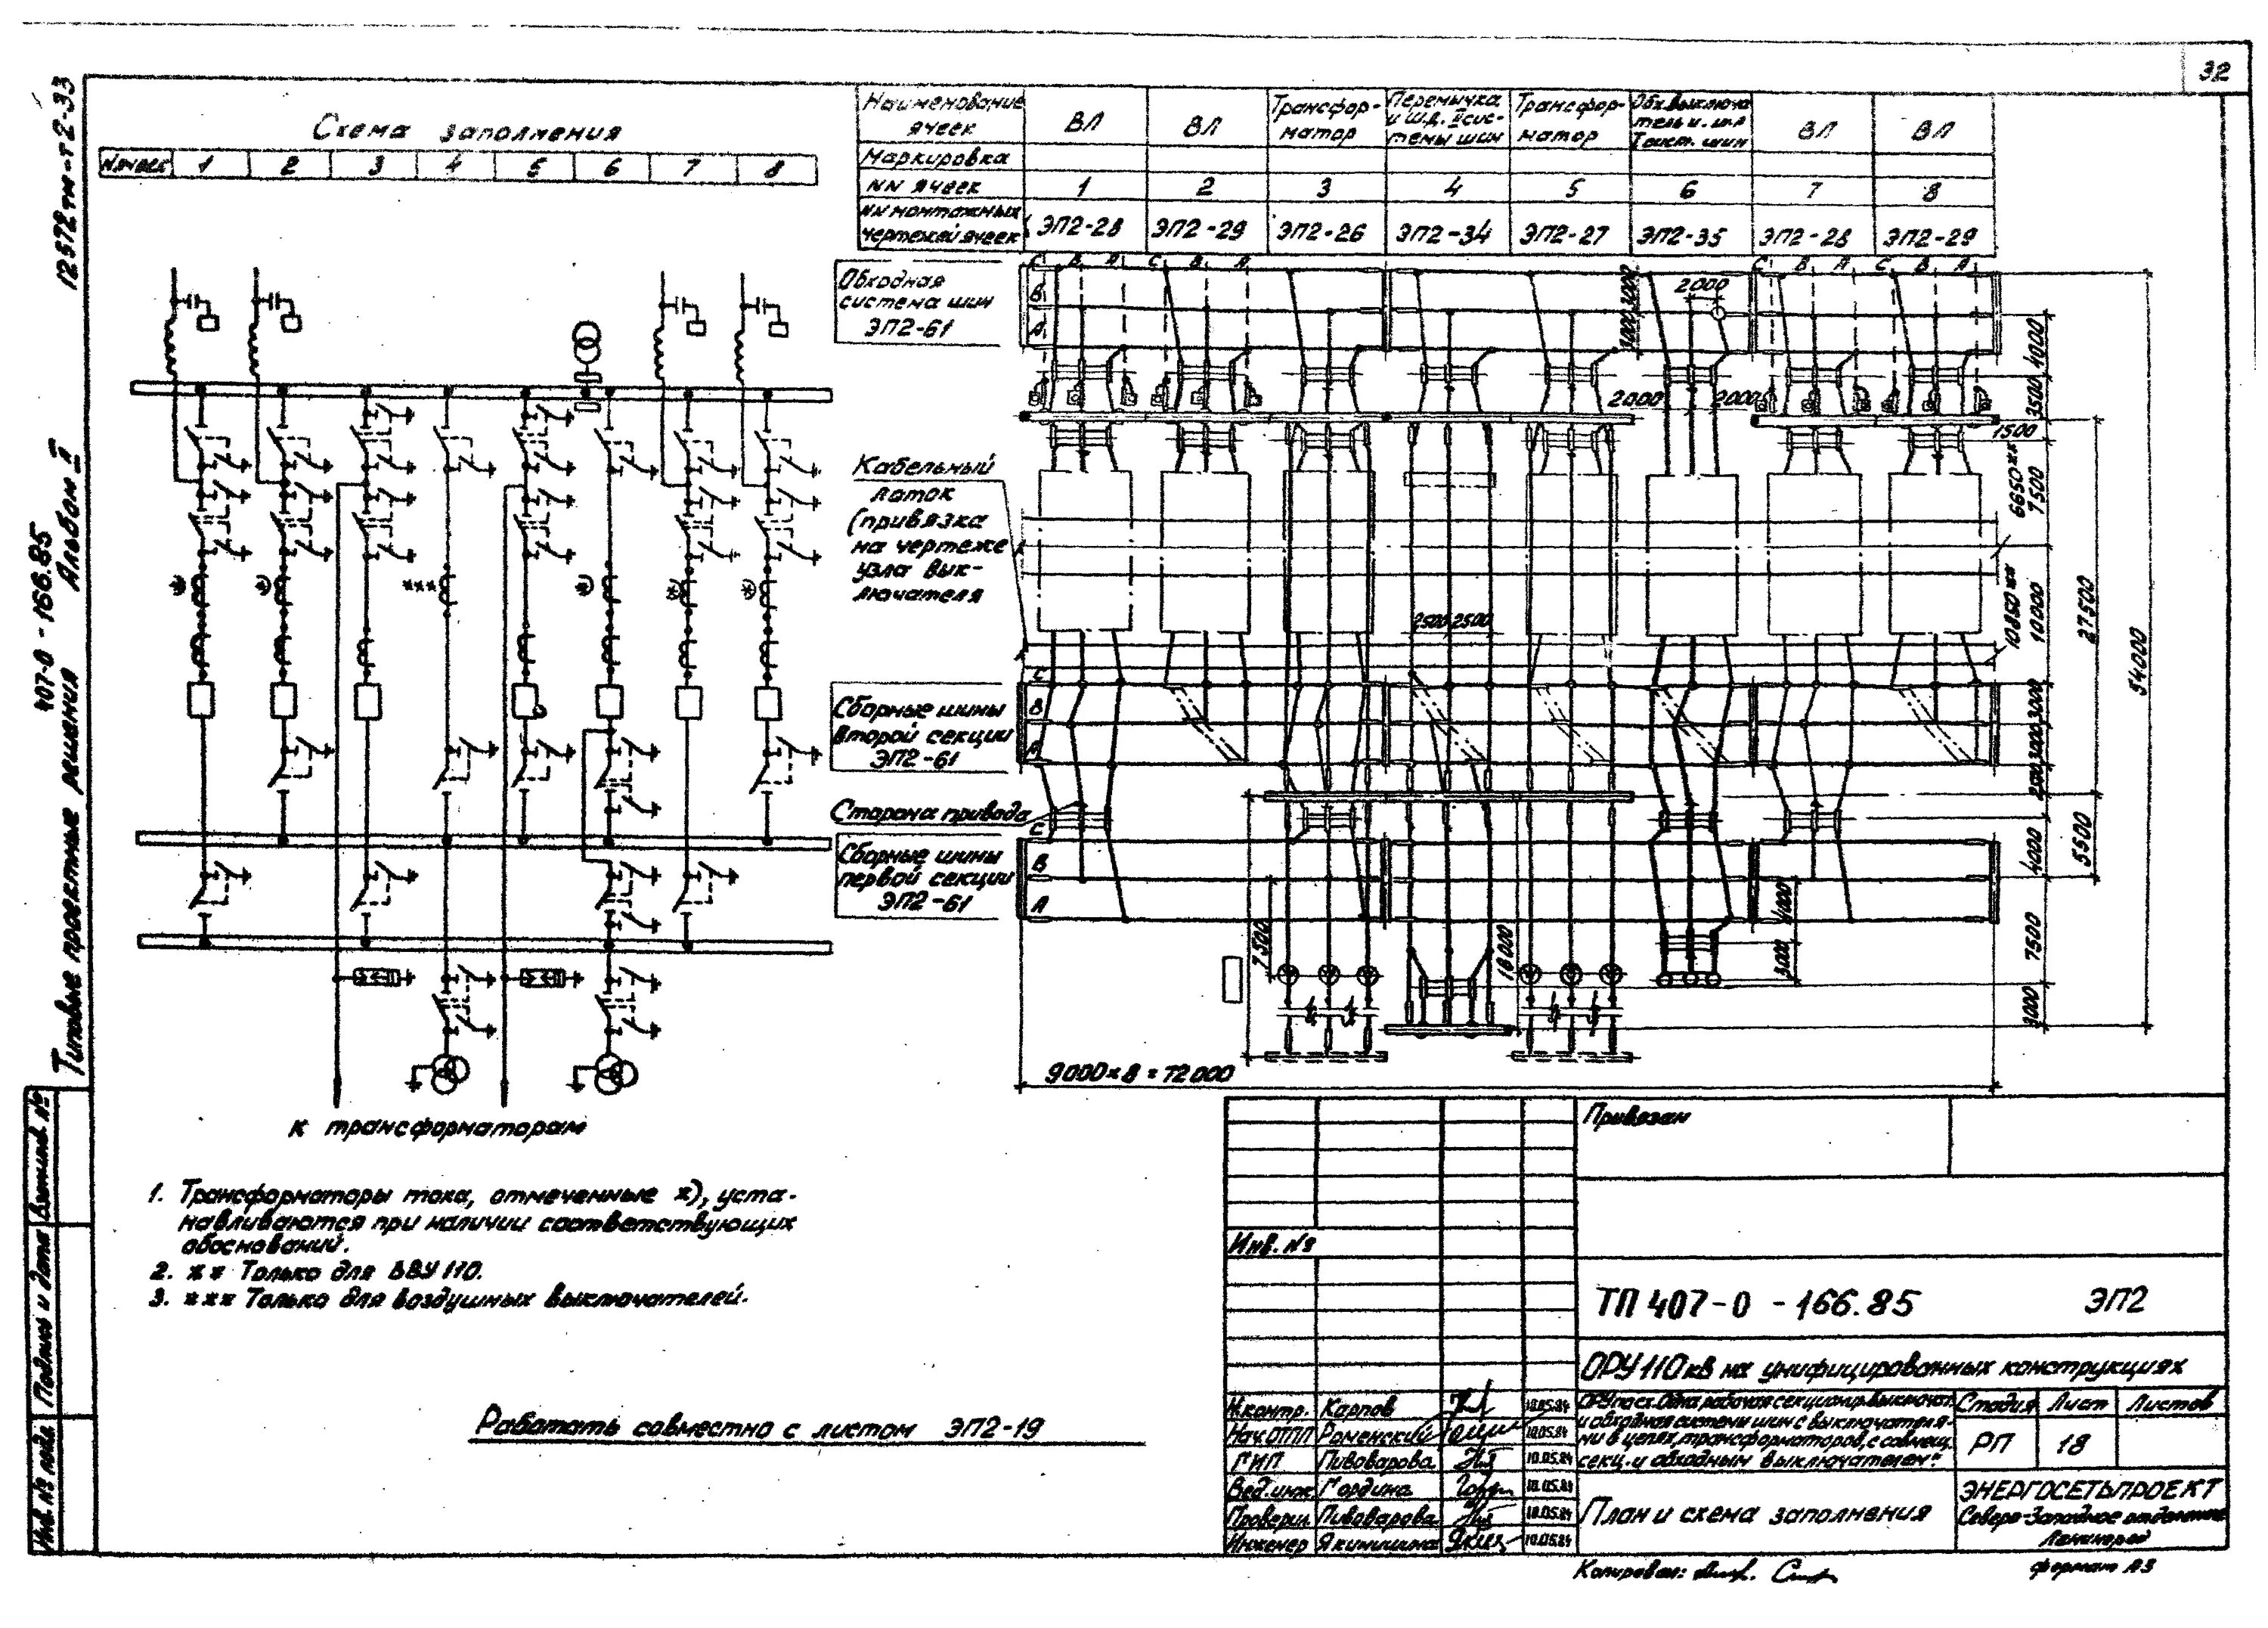 32
12572тм-т2-33
407-0-166.85
Типовые проектные решения Альбом II
Схема заполнения
N ячеек 1 2 3 4 5 6 7 8
Наименование ячеек
ВЛ
ВЛ
Трансфор-
матор
Перемычка
и ш.р. II сис-
темы шин
Трансфор-
матор
Обх. выключа
тель и ш.р
I сист. шин
ВЛ
ВЛ
Маркировка
NN ячеек 1 2 3 4 5 6 7 8
NN монтажных
чертежей ячеек ЭП2-28 ЭП2-29 ЭП2-26 ЭП2-34 ЭП2-27 ЭП2-35 ЭП2-28 ЭП2-29
Обходная
система шин
ЭП2-61
С В А С В А С В А С В А
В
А
3000
3000
2000
4000
2000
2000
3500
1500
Кабельный
лоток
(привязка
на чертеже
узла вык-
лючателя
6650**
7500
10850**
10000
27500
54000
2500 2500
***
Сборные шины
второй секции
ЭП2-61
С
В
А
3000
3000
Сторона привода
Сборные шины
первой секции
ЭП2-61
С
В
А
4000
5500
7500
18000
4000
3000
7500
3000
9000×8 = 72000
К трансформаторам
1. Трансформаторы тока, отмеченные *), уста-
навливаются при наличии соответствующих
обоснований.
2. ** Только для ВВУ 110.
3. *** Только для воздушных выключателей.
Работать совместно с листом ЭП2-19
Привязан
Инв. №
ТП 407-0-166.85 ЭП2
ОРУ 110 кВ на унифицированных конструкциях
Н.контр. Карпов 10.05.84
Нач.ОТП Роменский 10.05.84
ГИП Пивоварова 10.05.84
Вед.инж. Гордина 10.05.84
Проверил Пивоварова 10.05.84
Инженер 10.05.84
ОРУ по сх. Одна рабочая секционир. выключат.
и обходная системы шин с выключателя-
ми в цепях трансформаторов, с совмещ.
секц. и обходным выключателем"
Стадия Лист Листов
РП 18
План и схема заполнения
ЭНЕРГОСЕТЬПРОЕКТ
Северо-Западное отделение
Ленинград
Копировал:
формат А3
Инв. № подл. Подпись и дата Взам.инв. №